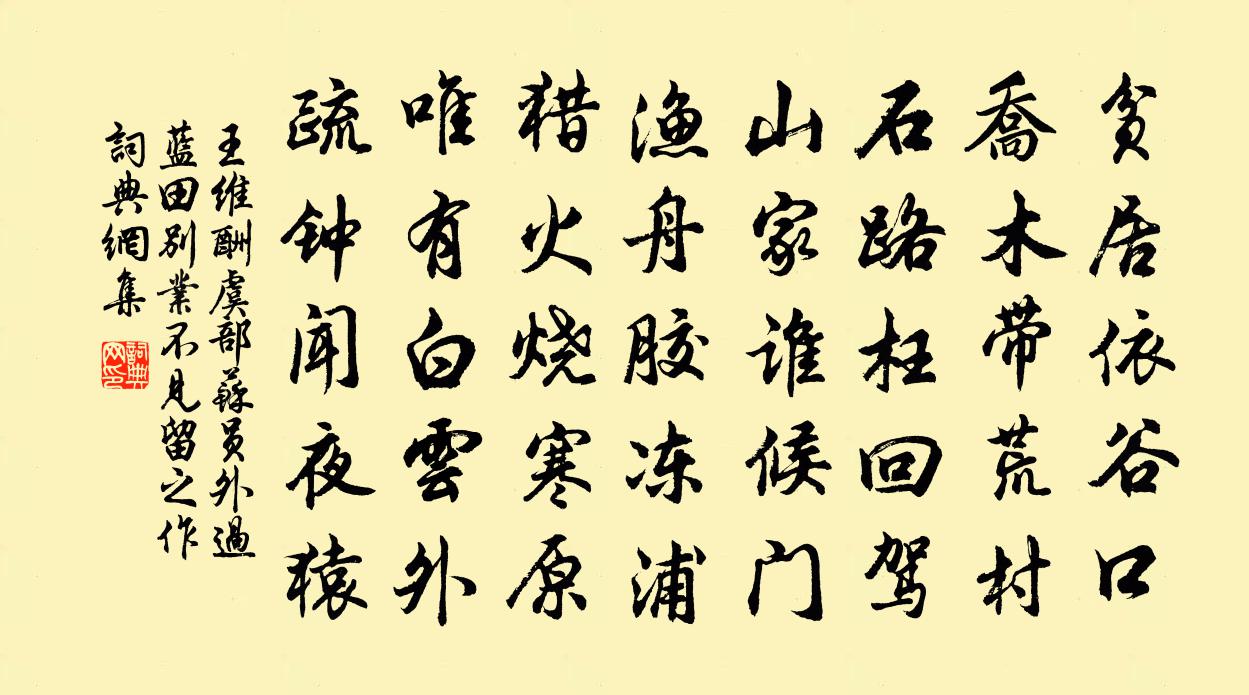 贫居依谷口
喬木带荒村
石路枉回驾
山家谁候门
渔舟胶冻浦
猎火烧寒原
唯有白雲外
疏钟闻夜猿
王维酬虞部蘇員外過
蓝田别業不见留之作
詞典網集
詞典网印